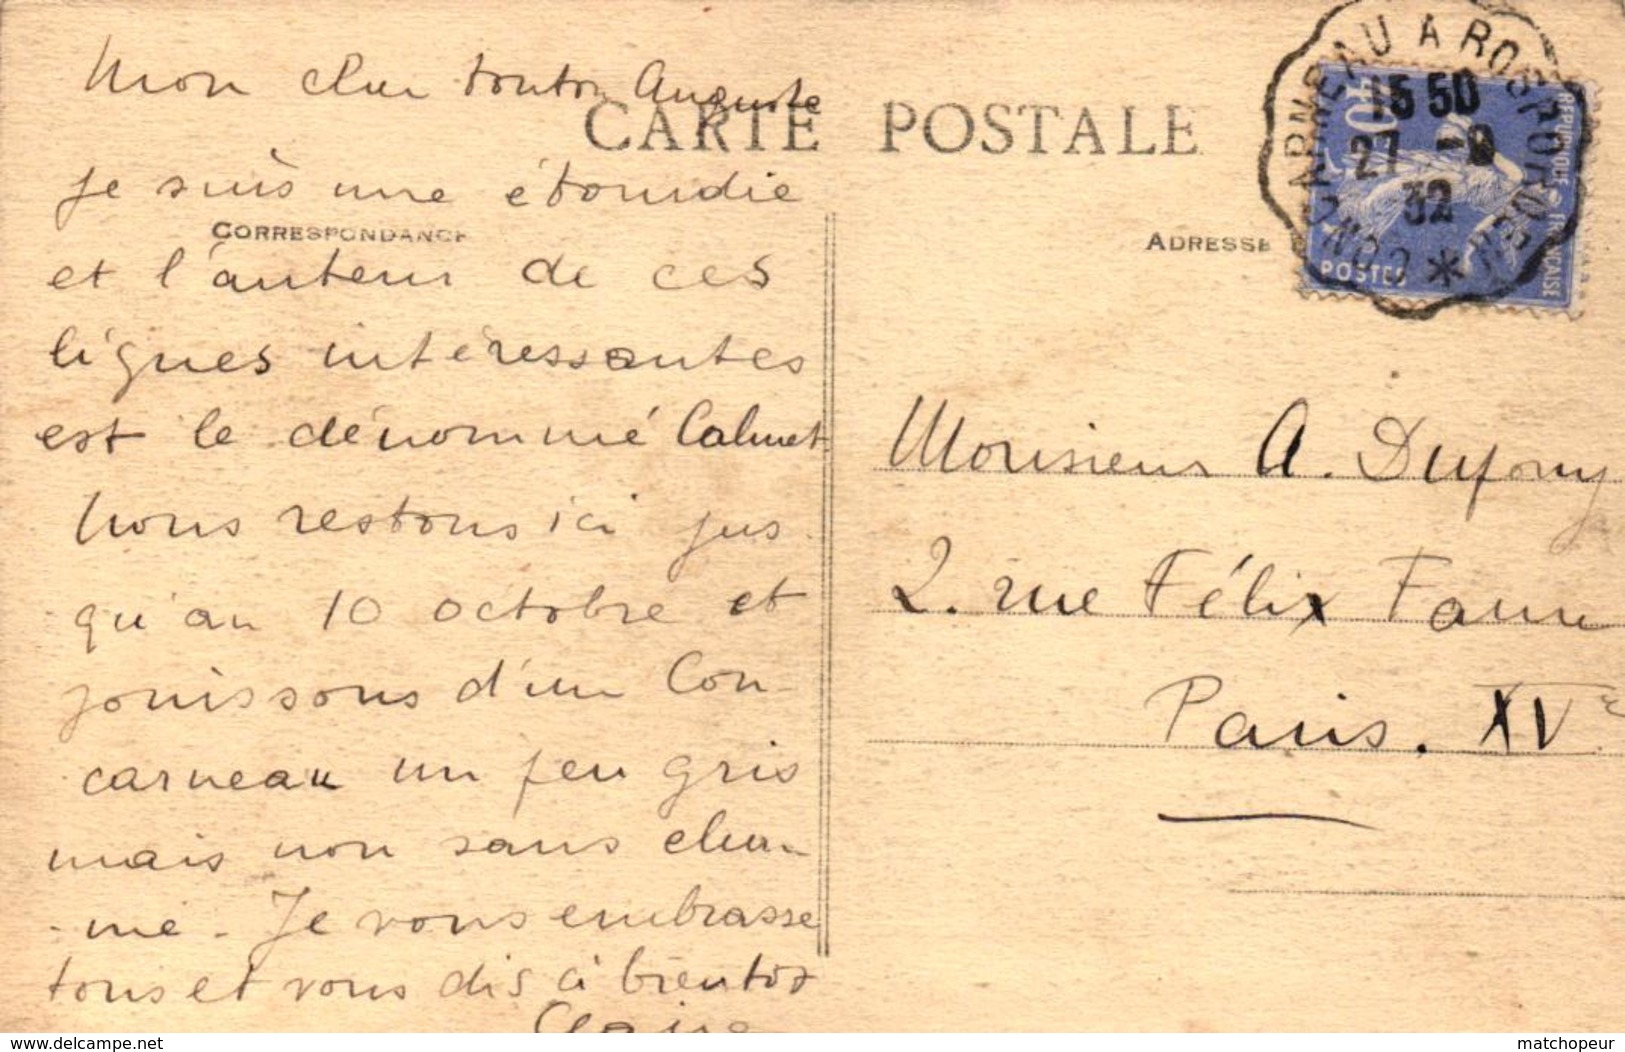 Mon cher tonton Auguste
CARTE POSTALE
je suis une étourdie
CORRESPONDANCE
et l'auteur de ces
lignes intéressantes
est le dénommé Calmet
Nous restons ici jus
qu'au 10 octobre et
jouissons d'un Con-
carneau un peu gris
mais non sans char-
-me. Je vous embrasse
tous et vous dis à bientôt
Claire
CONCARNEAU A ROSPORDEN
15 50
27 -9
32
40c
POSTES
REPUBLIQUE FRANCAISE
ADRESSE
Monsieur A. Dufouy
2. rue Félix Faure
Paris. XVe
delcampe.net
matchopeur